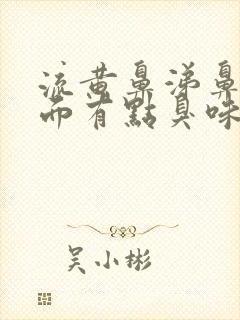 流黄鼻涕鼻
而有點臭味
吴小彬